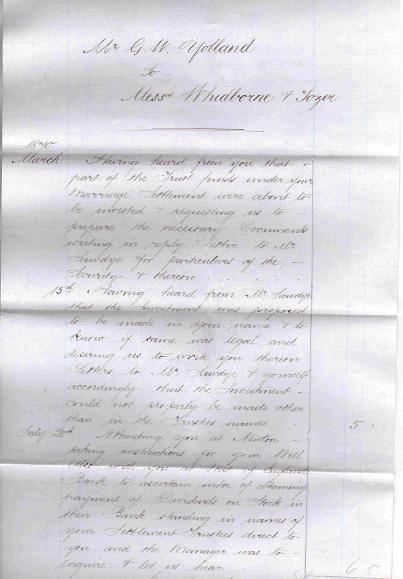 Mr G. W. Yolland
to
Messrs Whidborne & Tozer
March Having heard from you that
part of the Trust funds under your
Marriage Settlement were about to
be invested & requesting us to
prepare the necessary Documents
writing in reply Letter to Mr
Sawdye for particulars of the
Security & thereon
15th Having heard from Mr Sawdye
that the Investment was proposed
to be made in your name & to
know if same was legal and
desiring us to write you thereon
Letters to Mr Sawdye & yourself
accordingly that the Investment
could not properly be made other
than in the Trustees names 5
July Attending you at Newton
taking instructions for your Will
also with you at
Bank to ascertain mode of obtaining
payment of Dividends on Stock in
their Bank standing in names of
your Settlement Trustees direct to
you and the Manager was to
enquire & let us hear 6 8